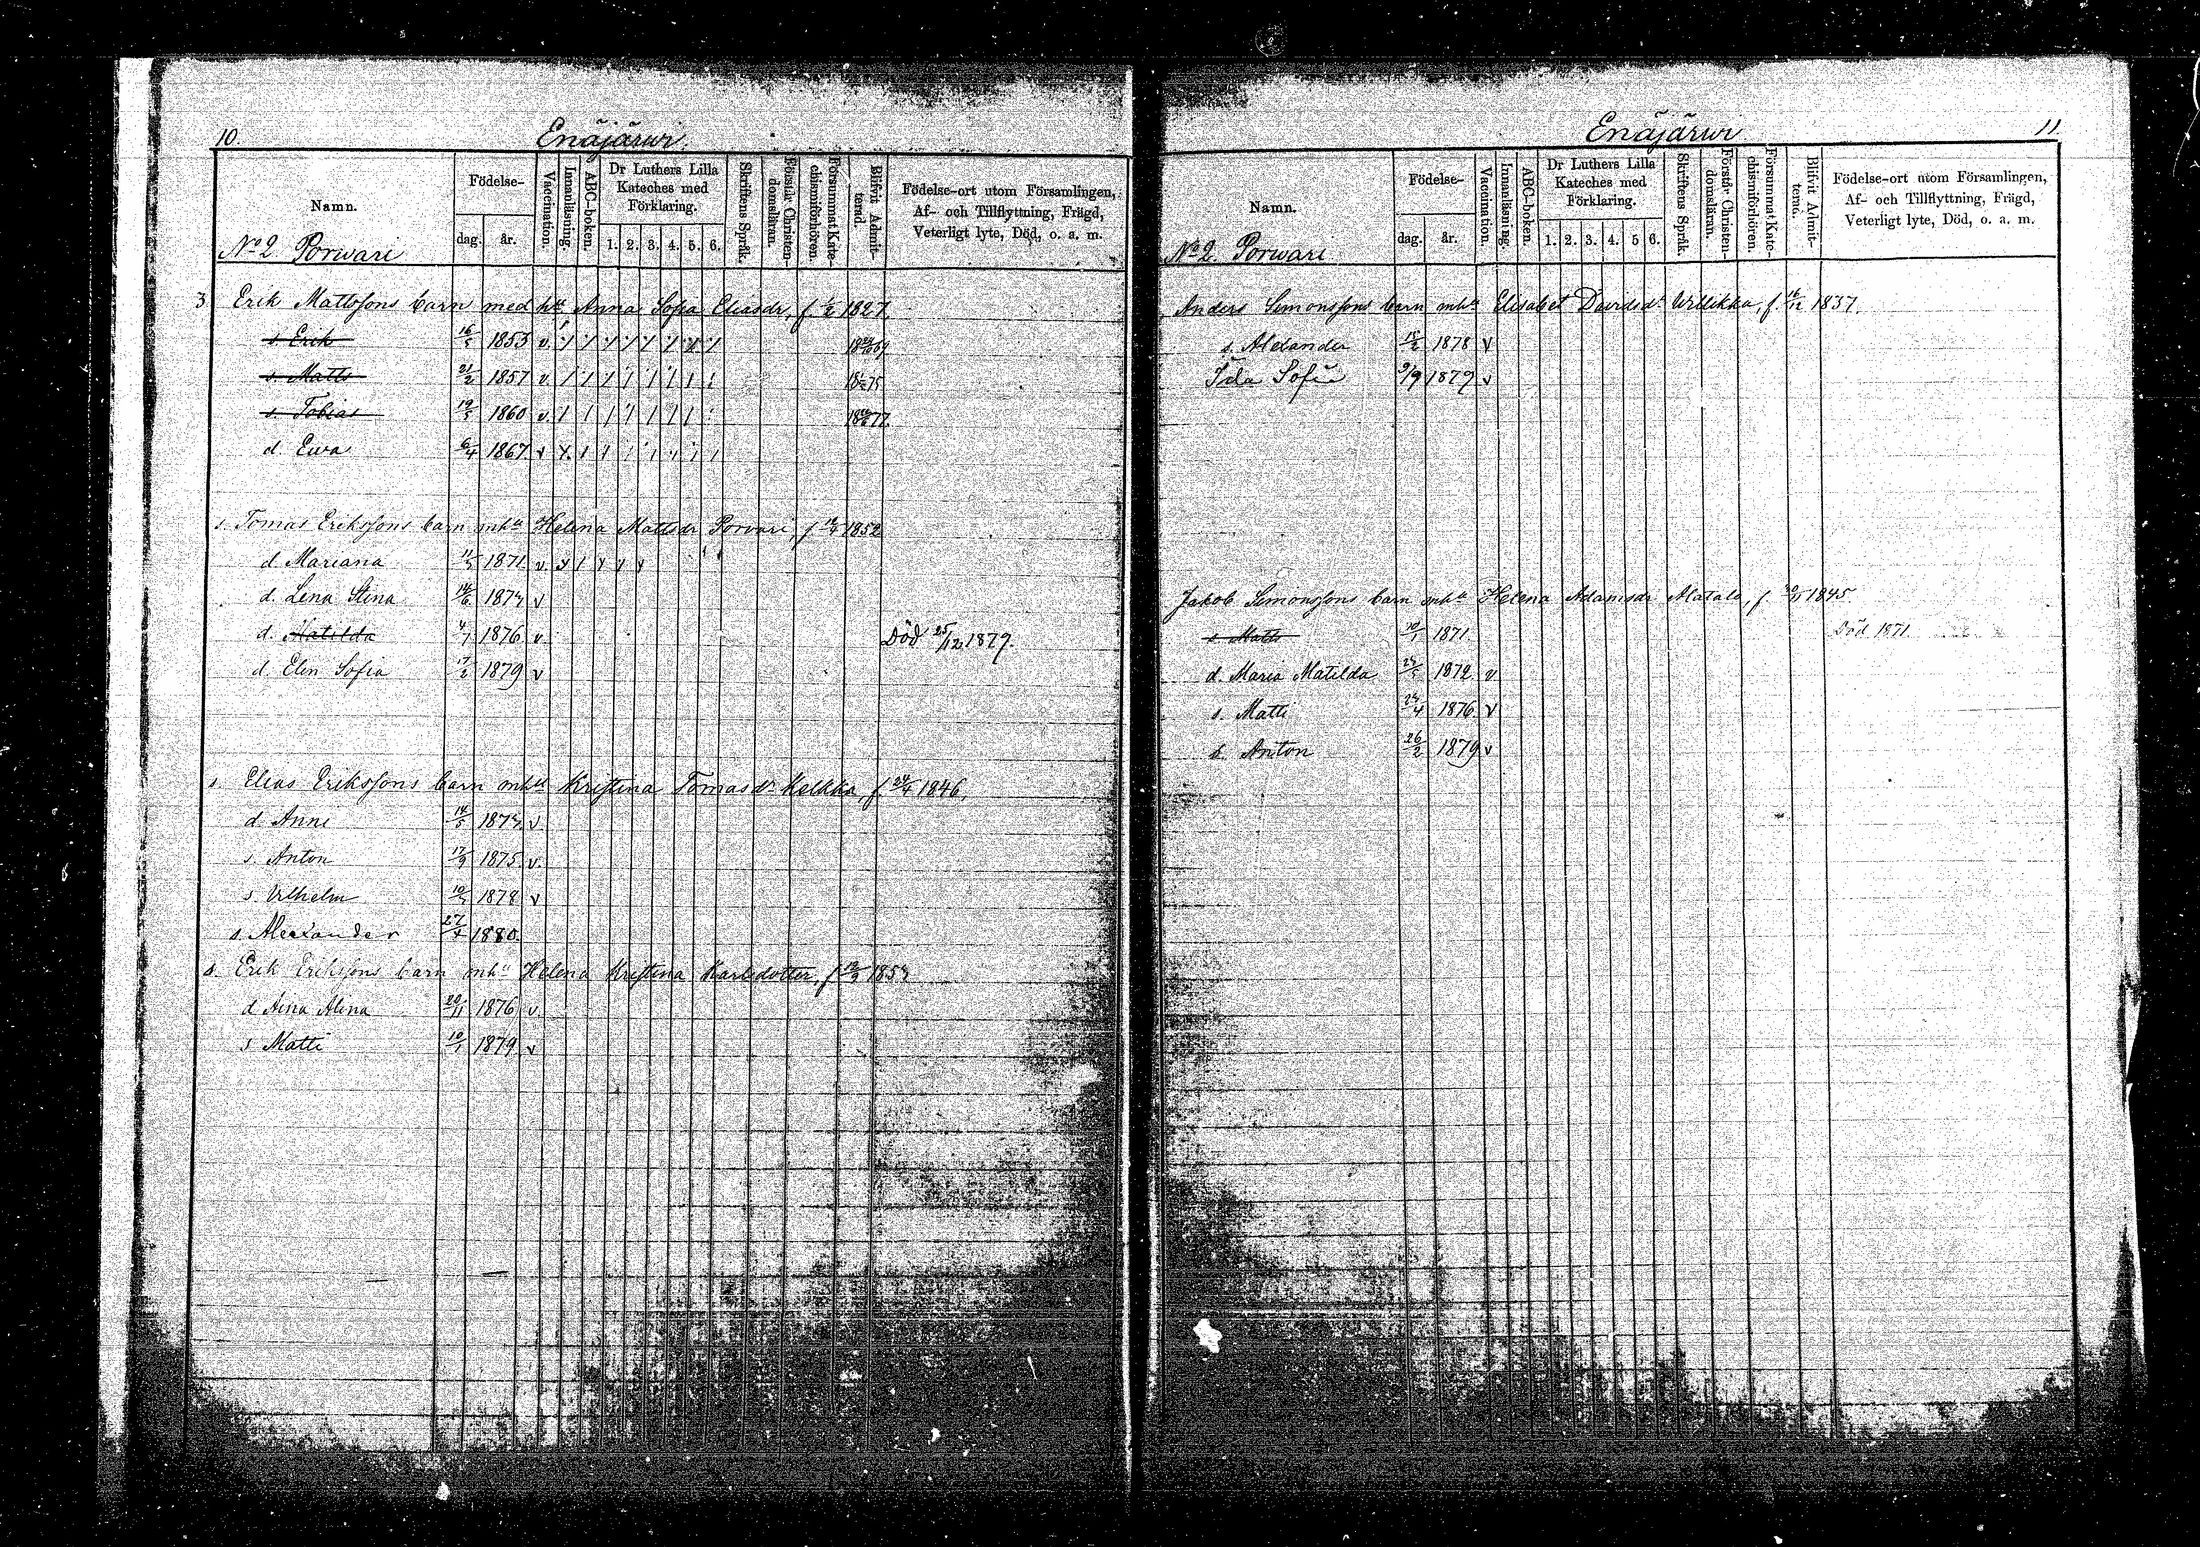 10.
Enäjärwi
Namn.
Födelse-
dag.
år.
Vaccination.
Innanläsning.
ABC-boken.
Dr Luthers Lilla
Kateches med
Förklaring.
1. 2. 3. 4. 5. 6.
Skriftens Språk.
Förstår Christen-
domsläran.
Försummat Kate-
chismiförhören.
Blifvit Admit-
terad.
Födelse-ort utom Församlingen,
Af- och Tillflyttning, Frägd,
Veterligt lyte, Död, o. a. m.
No 2 Porwari
3 Erik Mattssons barn med hu Anna Sofia Eliasdr, f. 1/2 1827.
s. Erik 16/5 1853 v.
s. Matts 21/2 1857 v
s. Tobias 19/5 1860 v.
d. Ewa 6/4 1867 v
s. Tomas Erikssons barn mhu Helena Mattsdr Porvari, f. 1852
d. Mariana 11/5 1871 v.
d. Lena Stina 14/6 1873 v
d. Matilda 4/1 1876 v. Död 25/12 1879.
d. Elin Sofia 17/2 1879 v
s. Elias Erikssons barn mhu Kristina Tomasdr Kelkka, f. 24/4 1846,
d. Anni 14/5 1873 v
s. Anton 17/9 1875. v.
s. Vilhelm 1878 v
s. Alexander 27/4 1880.
s. Erik Erikssons barn mhu Helena Kristina Karlsdotter, f. 1853
d Aina Alina 20/11 1876 v.
s Matti 10/1 1879 v
Enäjärwi
11.
Namn.
Födelse-
dag.
år.
Vaccination.
Innanläsning.
ABC-boken.
Dr Luthers Lilla
Kateches med
Förklaring.
1. 2. 3. 4. 5 6.
Skriftens Språk.
Förstår Christen-
domsläran.
Försummat Kate-
chismiförhören.
Blifvit Admit-
terad.
Födelse-ort utom Församlingen,
Af- och Tillflyttning, Frägd,
Veterligt lyte, Död, o. a. m.
No 2. Porwari
Anders Simonssons barn mhu Elisabet Davidsdr Willikka, f. 16/12 1837.
s. Alexander 15/2 1878 v
Ida Sofia 9/9 1879 v
Jakob Simonssons barn mhu Helena Adamsdr Alatalo, f. 1845.
s. Matts 10/1 1871 Död 1871
d. Maria Matilda 1872 v
s. Matti 1876 v
s. Anton 26/2 1879 v